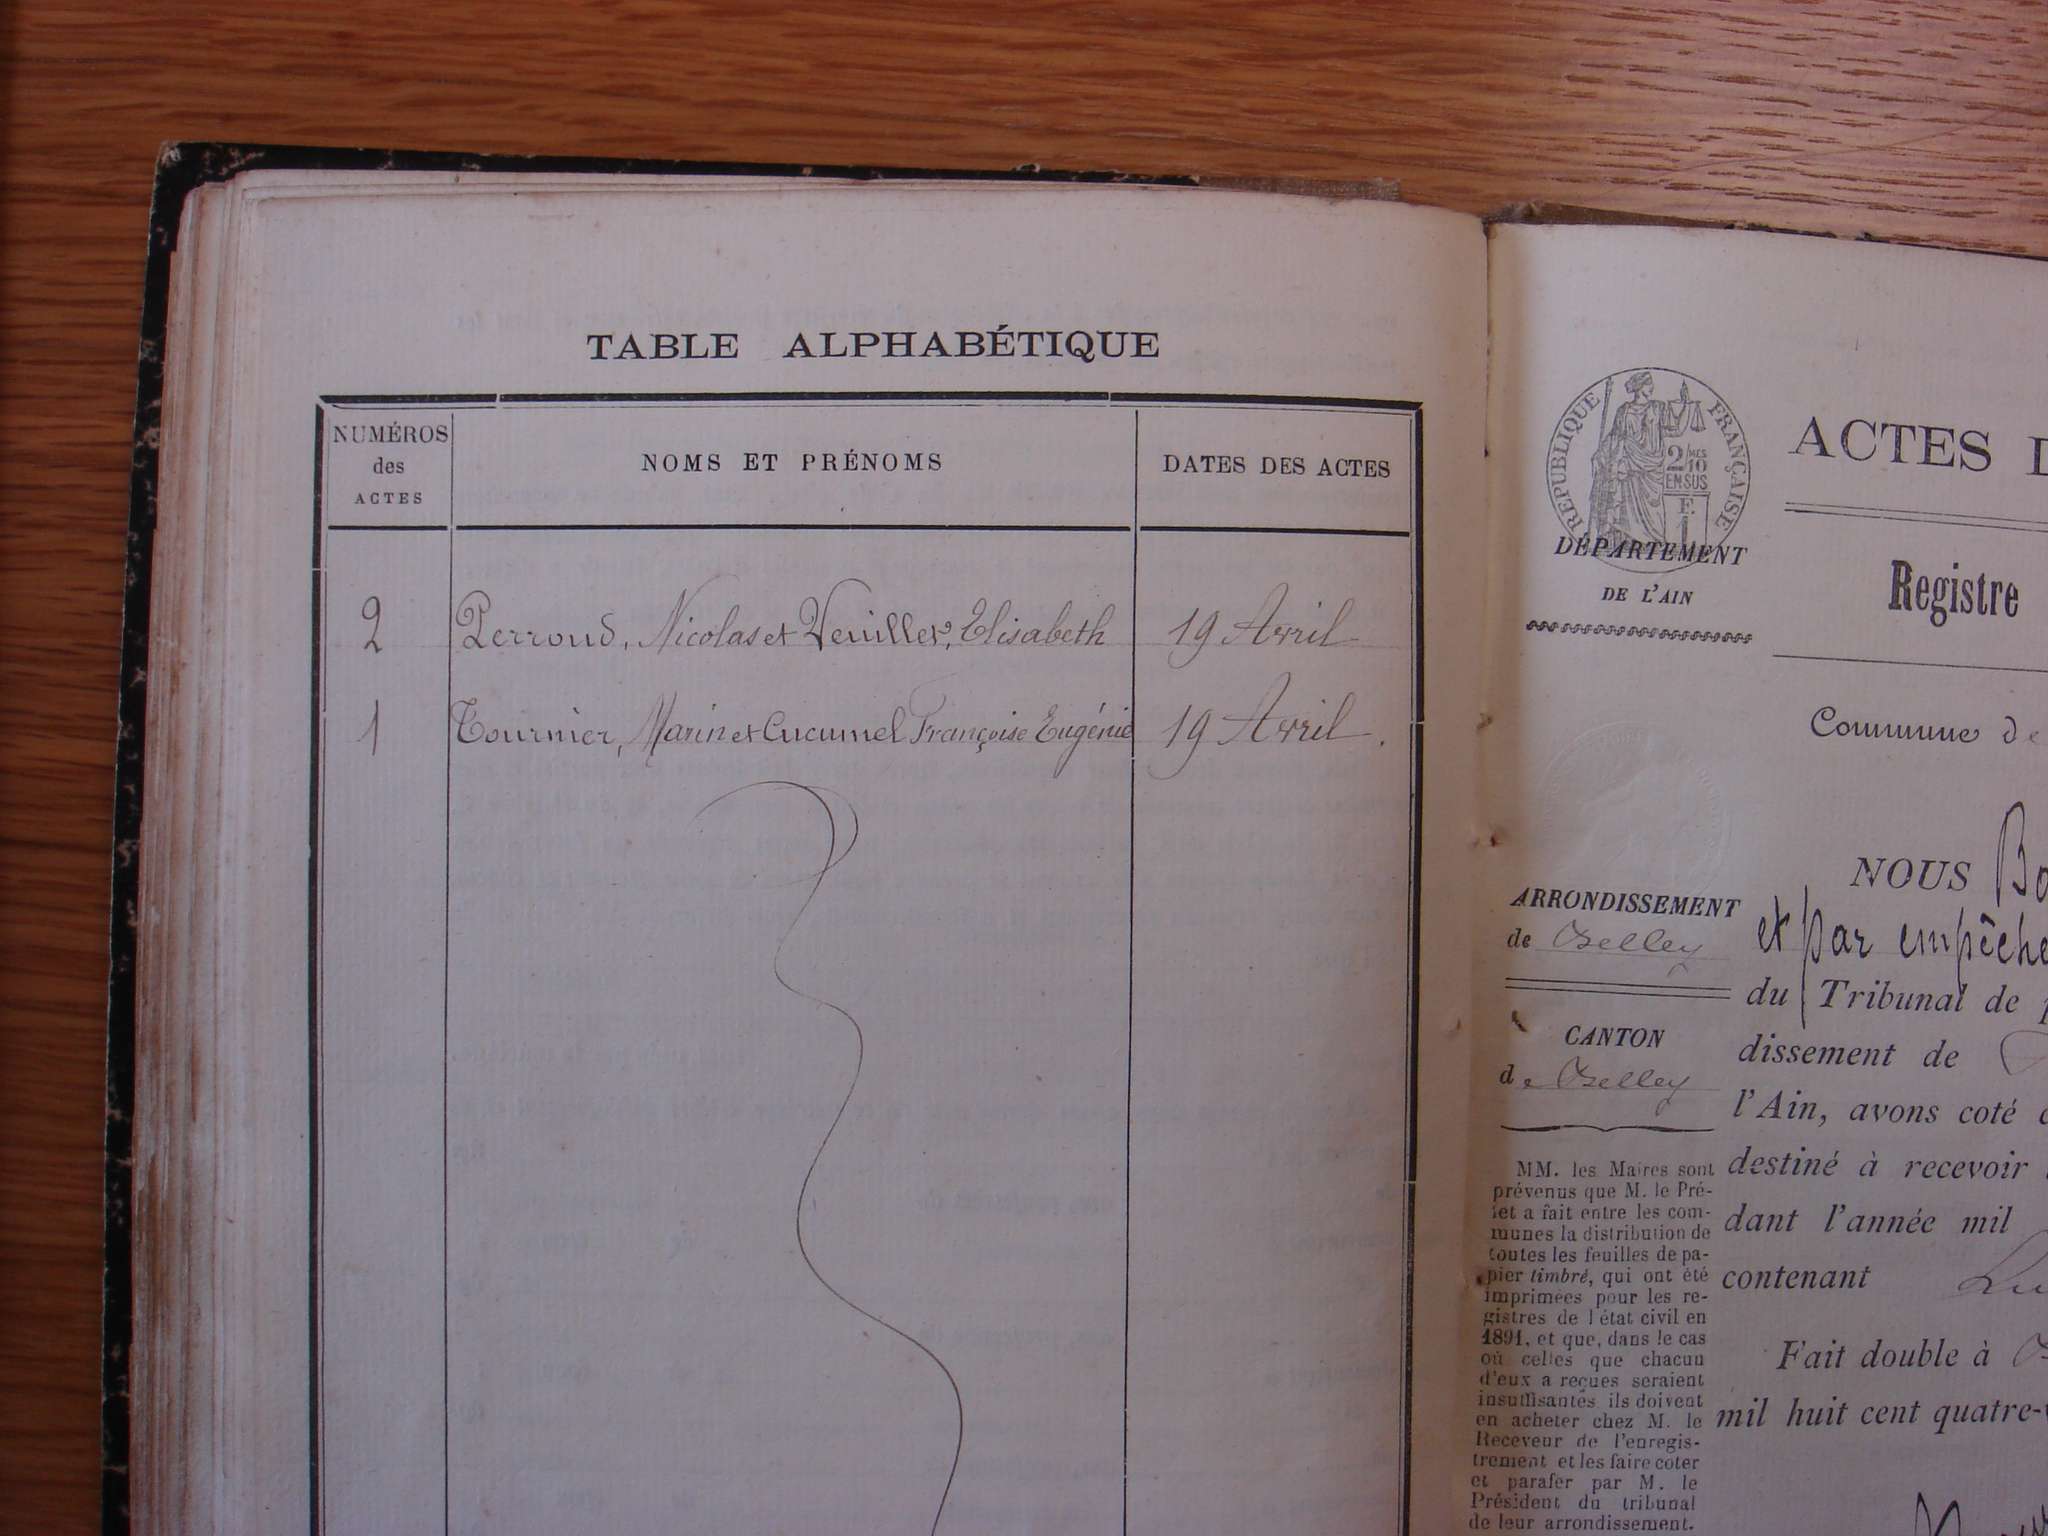 TABLE ALPHABÉTIQUE
NUMÉROS des ACTES
NOMS ET PRÉNOMS
DATES DES ACTES
2 Perroud, Nicolas et Veuillet, Elisabeth 19 Avril
1 Tournier, Marin et Cucumel Françoise Eugénie 19 Avril.
RÉPUBLIQUE FRANÇAISE
2/10 MES
EN SUS
F.
1
DÉPARTEMENT
DE L'AIN
ARRONDISSEMENT
de Belley
CANTON
de Belley
MM. les Maires sont
prévenus que M. le Pré-
fet a fait entre les com-
munes la distribution de
toutes les feuilles de pa-
pier timbré, qui ont été
imprimées pour les re-
gistres de l'état civil en
1891, et que, dans le cas
où celles que chacun
d'eux a reçues seraient
insuffisantes ils doivent
en acheter chez M. le
Receveur de l'enregis-
trement et les faire coter
et parafer par M. le
Président du tribunal
de leur arrondissement.
ACTES D
Registre
Commune de
NOUS Bo
et par empêche
du Tribunal de p
dissement de
l'Ain, avons coté
destiné à recevoir
dant l'année mil
contenant
Fait double à
mil huit cent quatre-